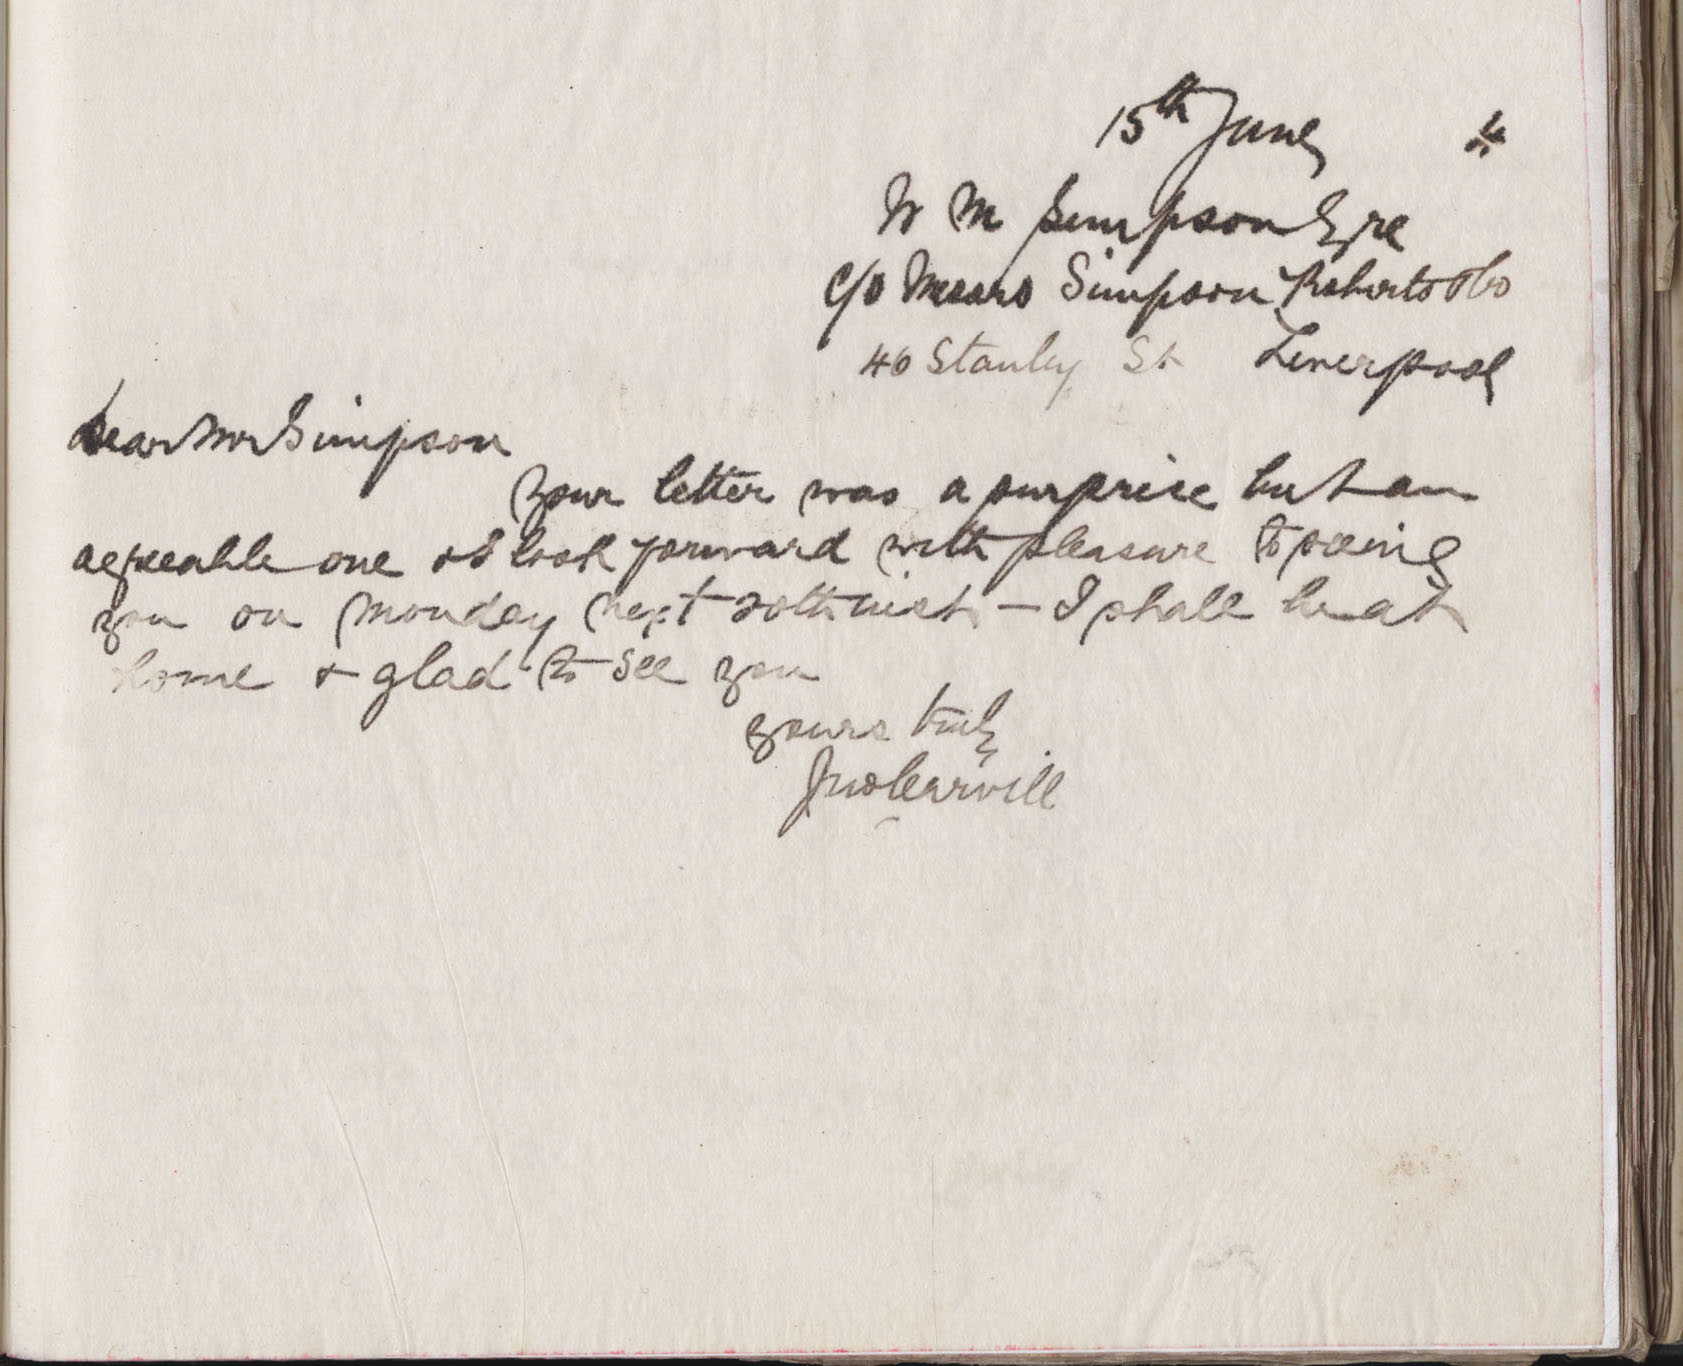 15th June 4
W M Simpson Esqre
C/o Messrs Simpson Roberts & Co
40 Stanley St Liverpool
Dear Mr Simpson
Your letter was a surprise but an
agreeable one & I look forward with pleasure to seeing
you on Monday next 20th inst – I shall be at
home & glad to see you
yours truly
Jno Carvill